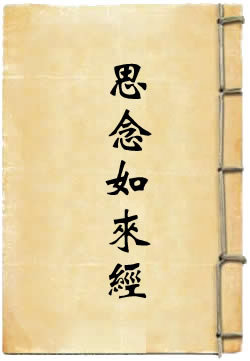 思念如來經